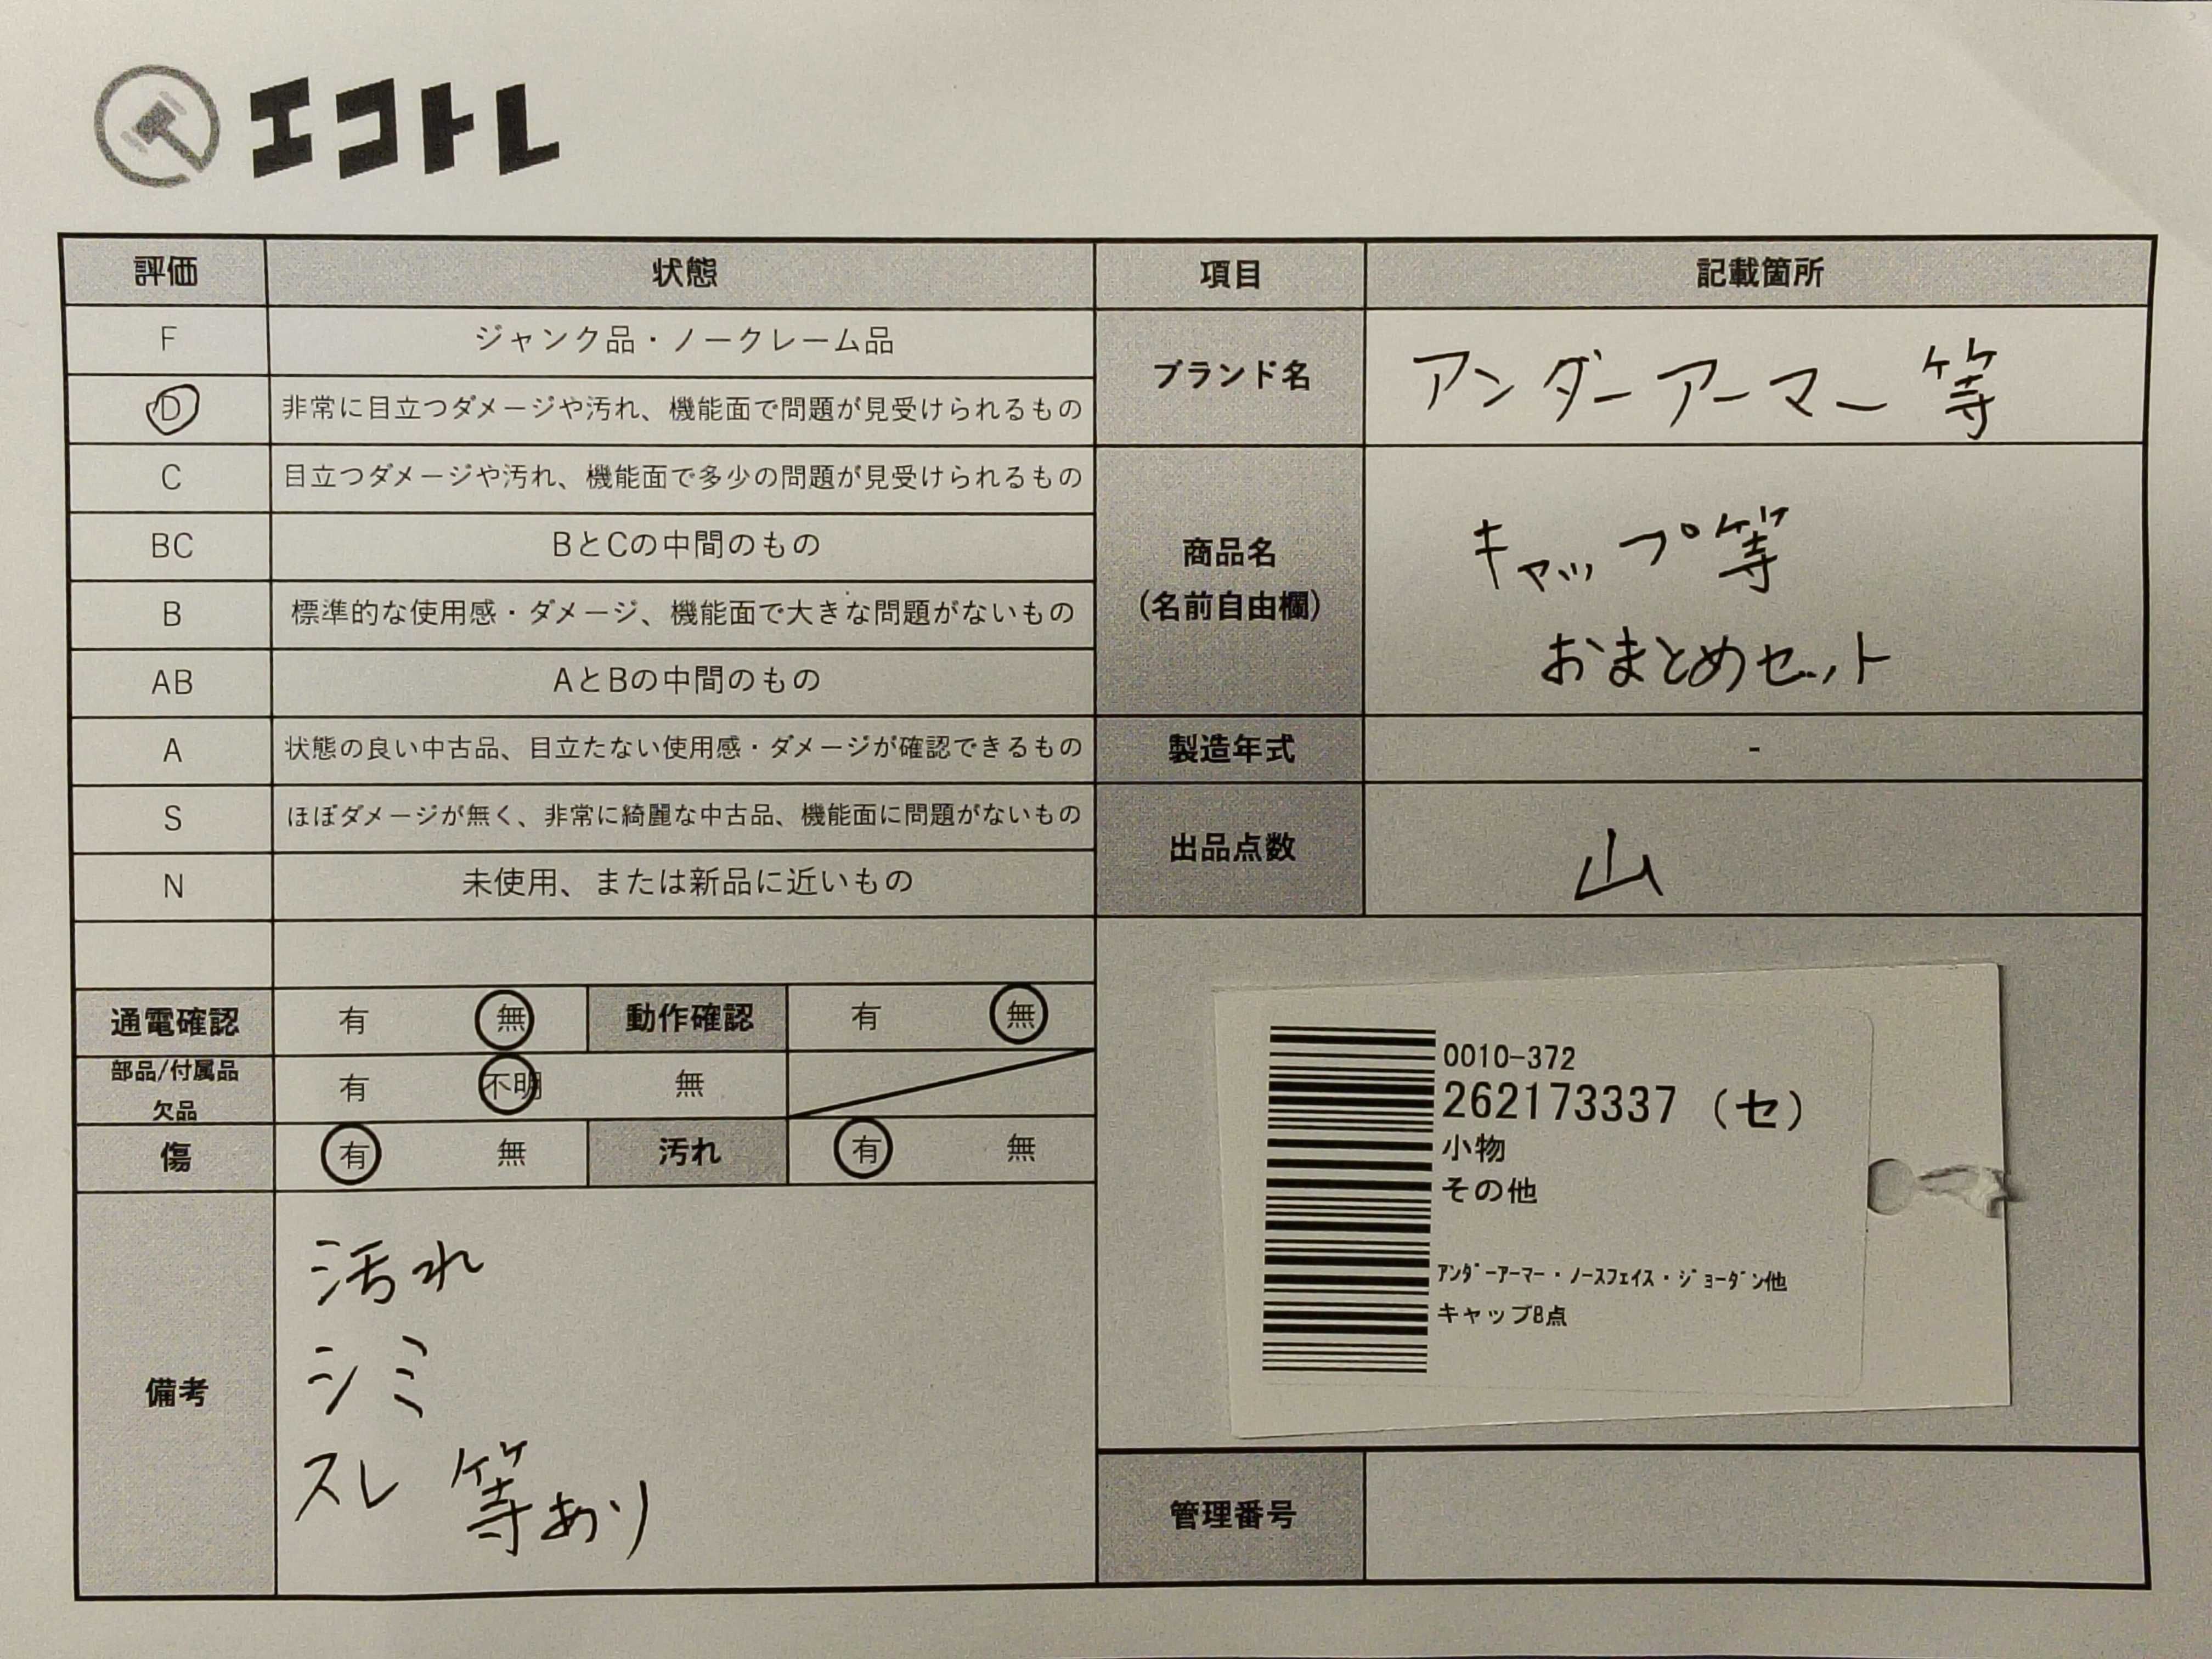 エコトレ
評価 状態 項目 記載箇所
F ジャンク品・ノークレーム品
D 非常に目立つダメージや汚れ、機能面で問題が見受けられるもの
C 目立つダメージや汚れ、機能面で多少の問題が見受けられるもの
BC BとCの中間のもの
B 標準的な使用感・ダメージ、機能面で大きな問題がないもの
AB AとBの中間のもの
A 状態の良い中古品、目立たない使用感・ダメージが確認できるもの
S ほぼダメージが無く、非常に綺麗な中古品、機能面に問題がないもの
N 未使用、または新品に近いもの
ブランド名 アンダーアーマー等
商品名
(名前自由欄)
キャップ等
おまとめセット
製造年式 -
出品点数 山
通電確認 有 無 動作確認 有 無
部品/付属品
欠品
有 不明 無
傷 有 無 汚れ 有 無
備考
汚れ
シミ
スレ 等あり
0010-372
262173337 (セ)
小物
その他
ｱﾝﾀﾞｰｱｰﾏｰ・ﾉｰｽﾌｪｲｽ・ｼﾞｮｰﾀﾞﾝ他
キャップ8点
管理番号